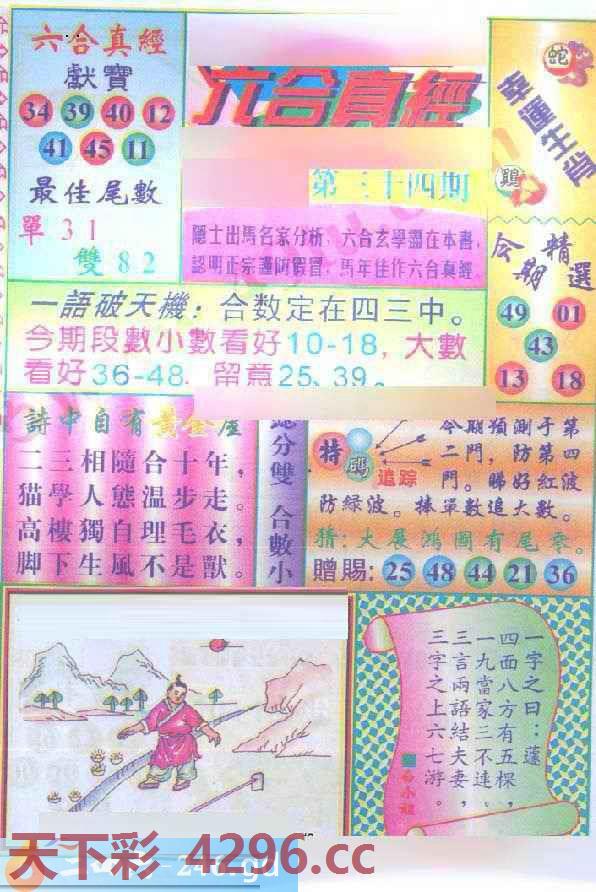 六合真經
獻寶
34 39 40 12
41 45 11
最佳尾數
單31
雙82
六合真經
第三十四期
隱士出馬名家分析，六合玄學盡在本書，
認明正宗謹防假冒，馬年佳作六合真經。
幸運生肖
蛇
鷄
今期精選
49 01
43
13 18
一語破天機：合数定在四三中。
今期段數小數看好10-18，大數
看好36-48，留意25、39。
詩中自有黃金屋
二三相隨合十年，
猫學人態温步走。
高樓獨自理毛衣，
脚下生風不是獸。
總分雙 合數小
特碼
追踪
今期須測于第
二門，防第四
門。睇好紅波
防緑波。捧單數追大數。
猜：大展鴻圖有尾零。
贈賜：25 48 44 21 36
一字之曰：蓬
四面八方有五棵，
一九當家三不連。
三言兩語結夫妻，
三字之上六七游。
天下彩 4296.cc